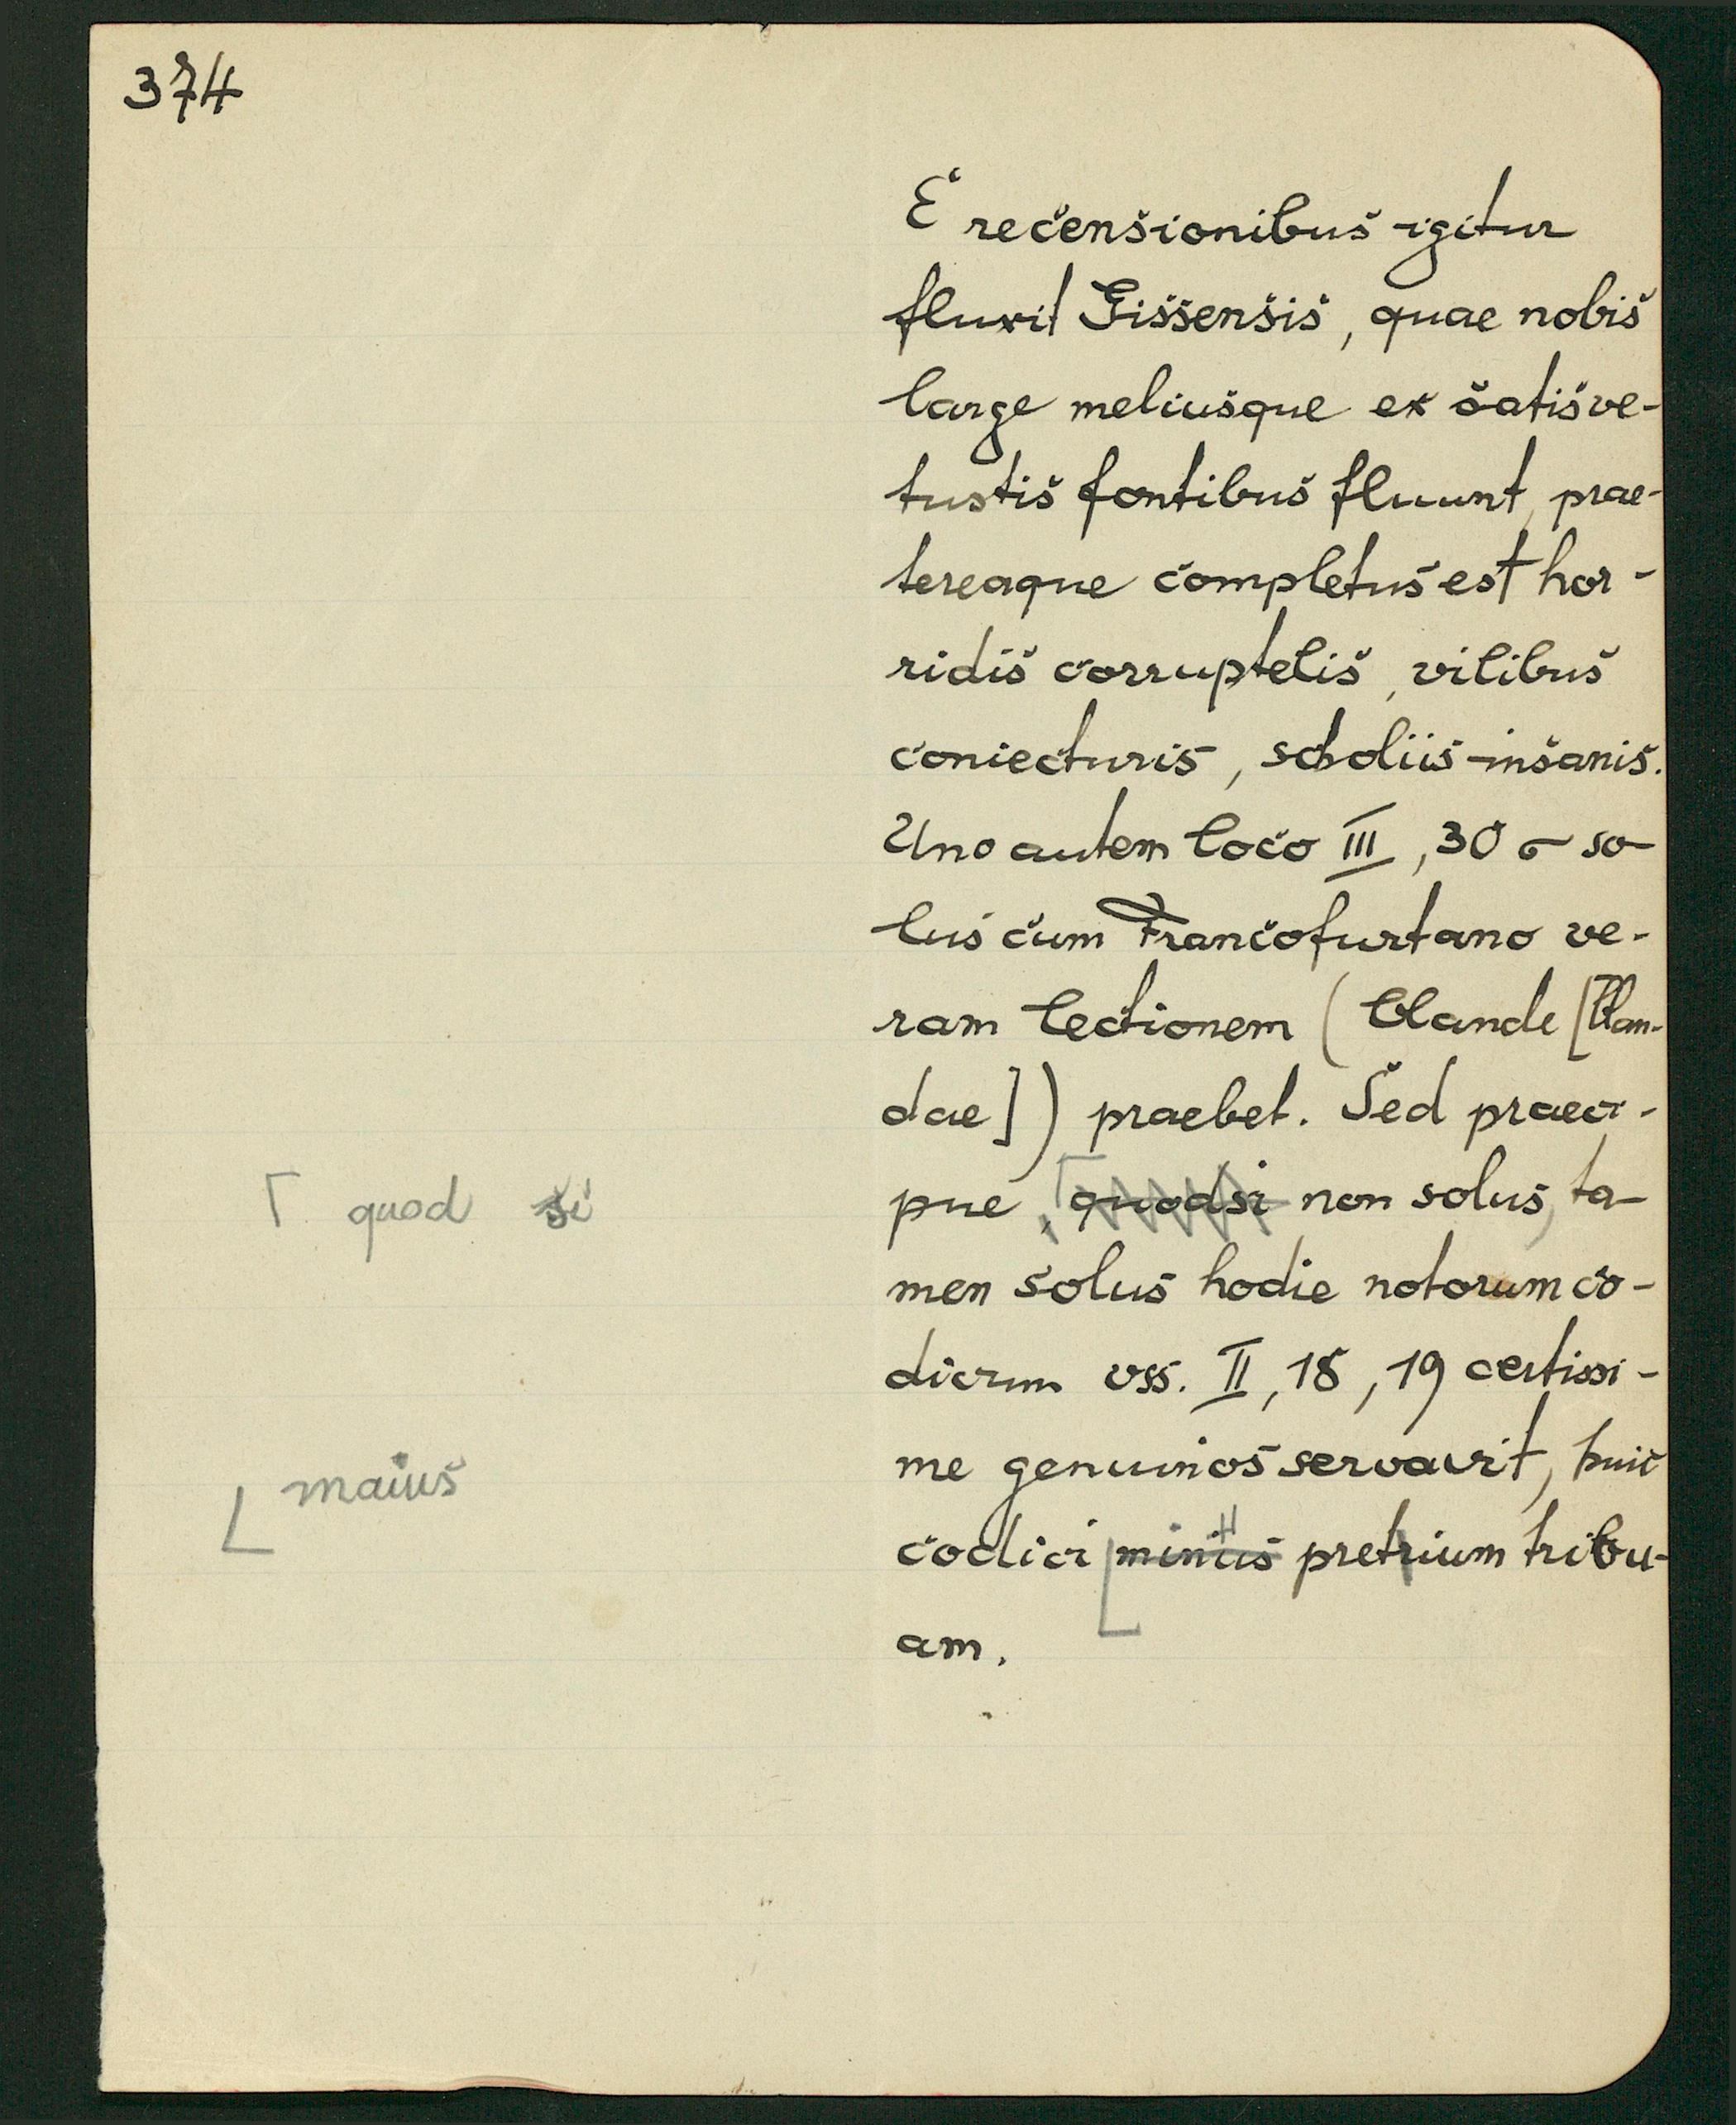 374
E recensionibus igitur
fluxit Gissensis, quae nobis
large meliusque ex satis ve-
tustis fontibus fluunt, prae-
tereaque completus est hor-
ridis corruptelis, vilibus
coniecturis, scholiis insanis.
Uno autem loco III, 30 σ so-
lus cum Francofurtano ve-
ram lectionem (blande [blan-
dae]) praebet. Sed praeci-
⌈ quod si
pue, ⌈quodsi non solus, ta-
men solus hodie notorum co-
dicum vss. II, 18, 19 certissi-
me genuinos servavit, huic
⌊ maius
codici ⌊minus pretrium tribu-
am.